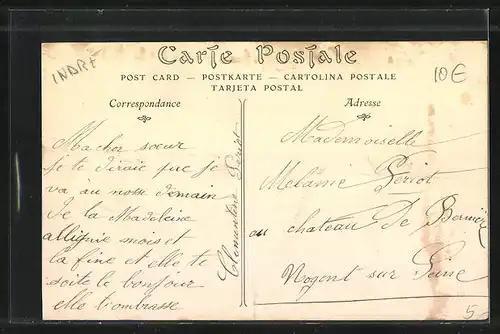 INDRE
10€
Carte Postale
POST CARD — POSTKARTE — CARTOLINA POSTALE
TARJETA POSTAL
Correspondance
Adresse
Ma cher sœur
je te diraie que je
va au nosse demain
de la Madeleine
et
la fine et elle te
soite le bonjour
elle t'ombrasse
Clementine Periot
Mademoiselle
Melanie Periot
au chateau De
Nogent sur Seine
5-